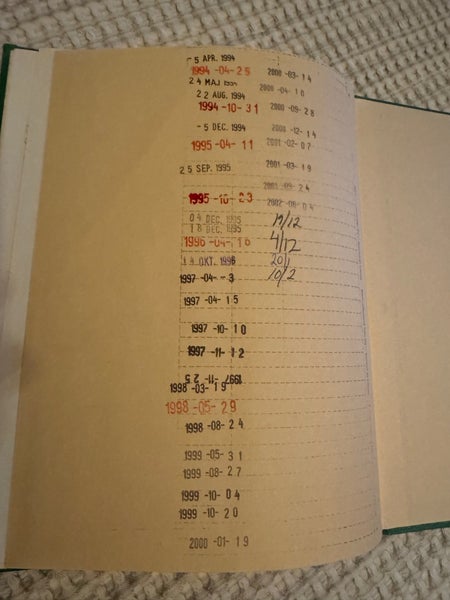 25 APR. 1994
1994 -04- 25
24 MAJ 1994
22 AUG. 1994
1994 -10- 31
- 5 DEC. 1994
1995 -04- 11
25 SEP. 1995
1995 -10- 23
04 DEC. 1995
18 DEC. 1995
1996 -04- 16
14 OKT. 1996
1997 -04- - 3
1997 -04- 15
1997 -10- 10
1997 -11- 12
1997 -11- 25
1998 -03- 19
1998 -05- 29
1998 -08- 24
1999 -05- 31
1999 -08- 27
1999 -10- 04
1999 -10- 20
2000 -01- 19
2000 -03- 14
2000 -04- 10
2000 -09- 28
2000 -12- 14
2001 -02- 07
2001 -03- 19
2001 -09- 24
2002 -08- 04
19/12
4/12
20/1
10/2